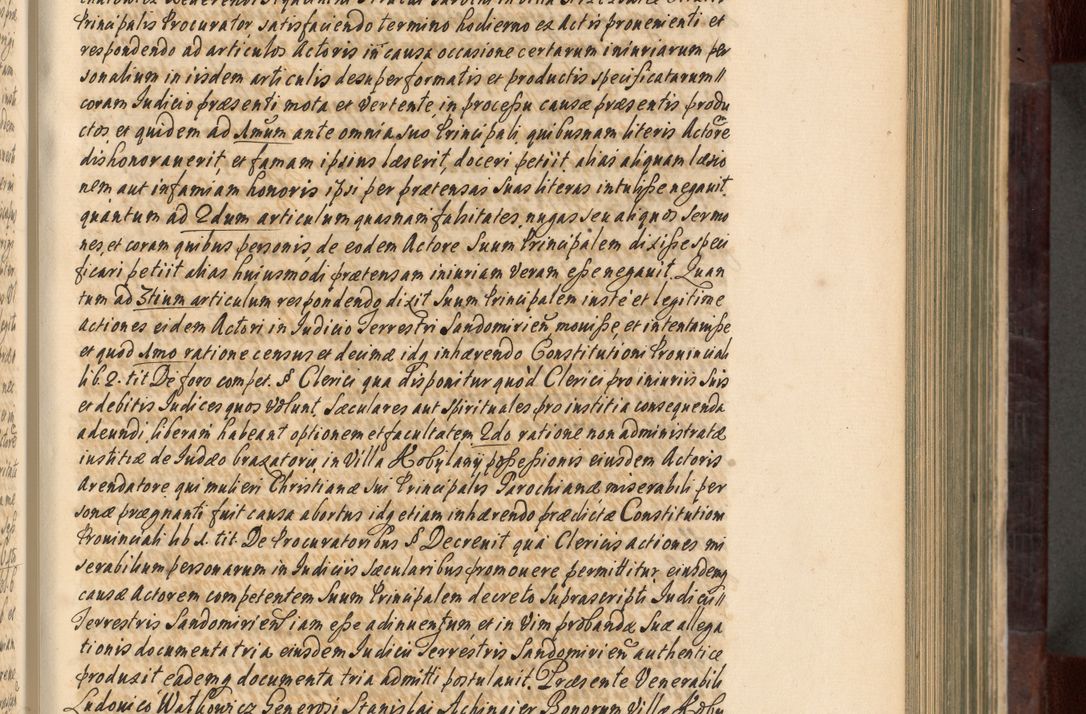 Principalis Procurator satisfaciendo termino hodierno ex Actis prouenienti et
respondendo ad articulos Actoris in causa occasione certarum iniuriarum per
sonalium in iisdem articulis desuper formatis et productis specificatarum //
coram Iudicio præsenti mota et Vertente, in processu causæ præsentis produ
ctos et quidem ad 1mum ante omnia suo Principali, quibusnam literis Actore
dishonorauerit, et famam ipsius læserit, doceri petiit, alias aliquam læsio
nem aut infamiam honoris ipsi per prætensas suas literas intulisse negauit.
quantum ad 2dum articulum quasnam falsitates, nugas seu aliquos Sermo
nes, et coram quibus personis, de eodem Actore Suum Principalem dixisse speci
ficari petiit alias huiusmodi prætensam iniuriam Veram esse negauit. Quan
tum ad 3tium articulum respondendo dixit Suum Principalem iuste et legitime
actiones eidem Actori in Iudicio Terrestri Sandomirien mouisse, et intentauisse
et quod 1mo ratione census et decimæ idq inhærendo Constitutioni Prouinciali
lib. 2. tit De foro compet. § Clerici qua disponitur quod Clerici pro iniuriis Suis
et debitis Iudices quos Volunt, Sæculares aut Spirituales pro iustitia consequenda
adeundi, liberam habeant optionem et facultatem 2do ratione non administratæ
iustitiæ de Iudæo braxatore, in Villa Kobylany possessionis eiusdem Actoris
Arendatore, qui mulieri Christianæ Sui Principalis Parochianæ miserabili per
sonæ prægnanti fuit causa abortus idq etiam inhærendo prædictæ Constitutioni
Prouinciali lib 1. tit. De Procuratoribus § Decreuit qua Clericus actiones mi
serabilium personarum in Iudiciis Sæcularibus promouere permittitur, eiusdemq
causæ Actorem competentem Suum Principalem decreto Suprascripti Iudicii //
Terrestris Sandomirien iam esse adinuentum et in Vim probandæ Suæ allega
tionis documenta tria eiusdem Iudicii Terrestris Sandomirien authentice
produxit eademq documenta tria admitti postulauit. Præsente Venerabili
Ludouico Walkowicz Generosi Stanislai Achinaier Bonorum Villæ Koby